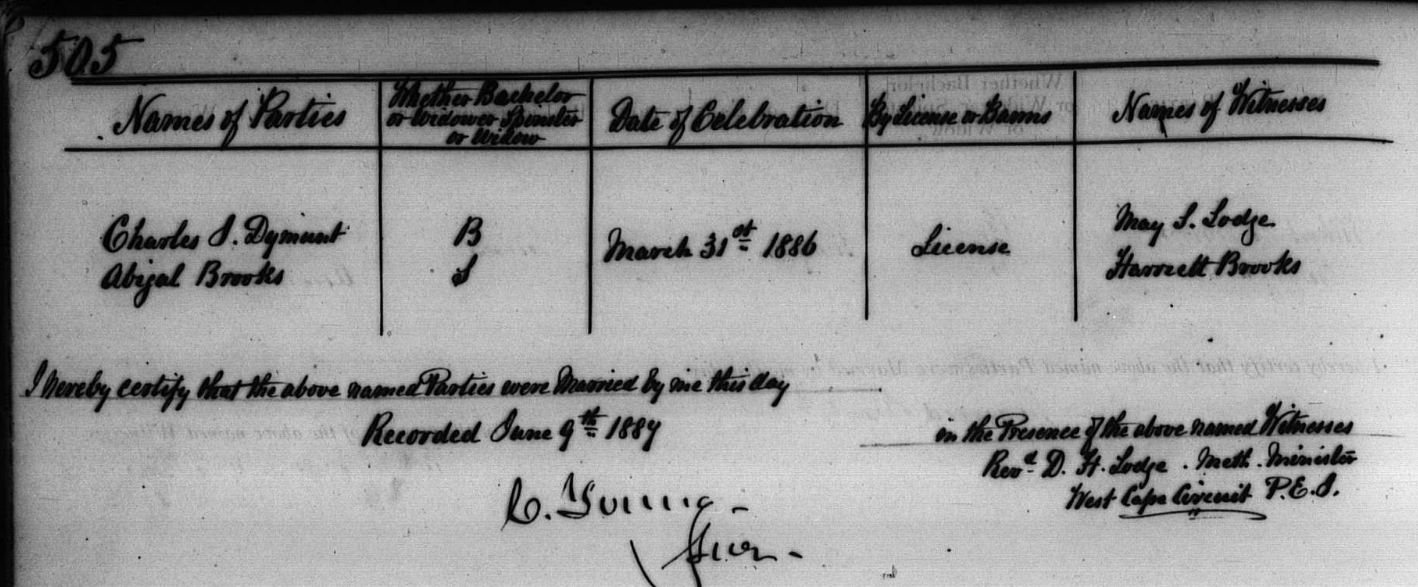 505
Names of Parties
Whether Bachelor
or Widower Spinster
or Widow
Date of Celebration
By License or Banns
Names of Witnesses
Charles J. Dymunt
Abigal Brooks
B
S
March 31st 1886
License
May S. Lodge
Harriett Brooks
I hereby certify that the above named Parties were Married by me this day
Recorded June 9th 1887
in the Presence of the above named Witnesses
Revd D. H. Lodge. Meth. Minister
West Cape Circuit P.E.I.
C. Young